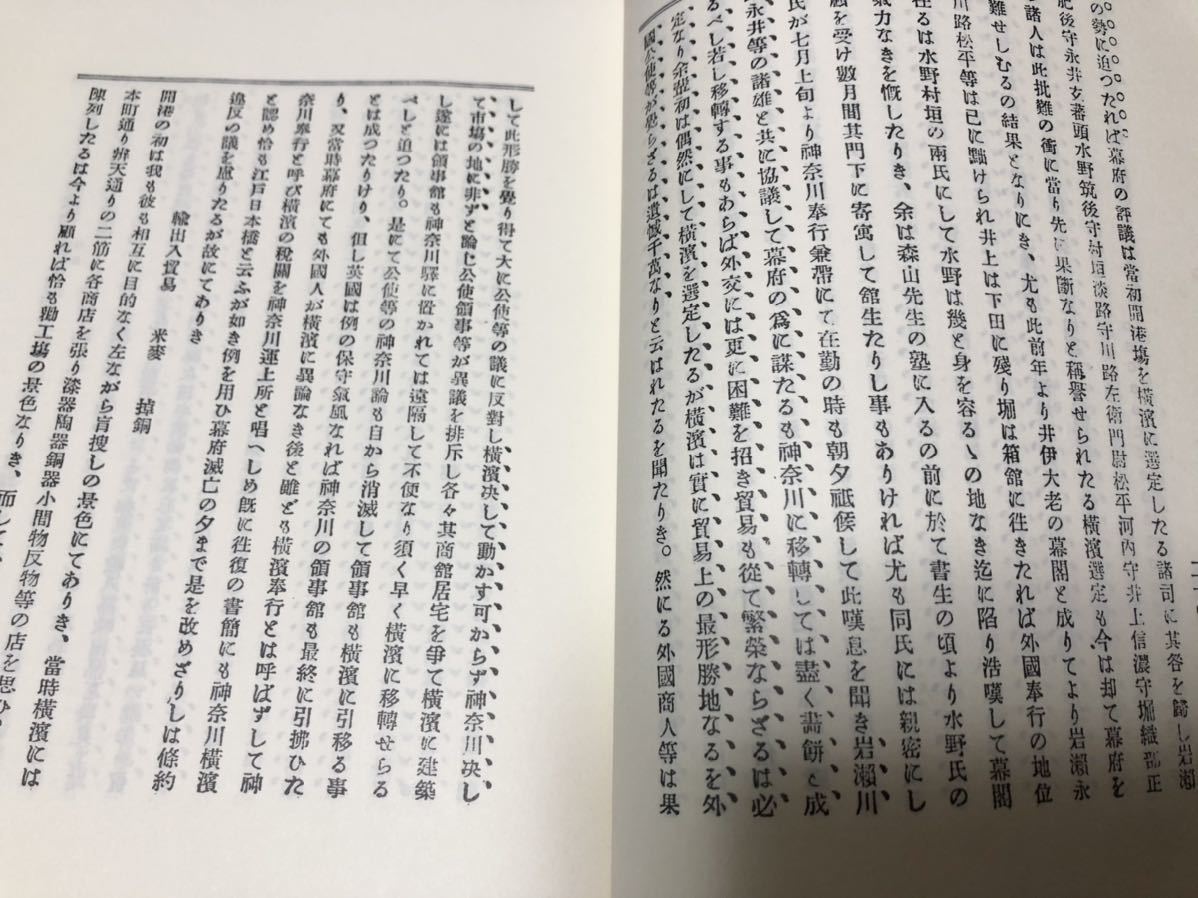 の勢に迫つたれば幕府の評議は當初開港塲を橫濱に選定したる諸司に其咎を歸し岩瀨
肥後守永井玄蕃頭水野筑後守村垣淡路守川路左衛門尉松平河內守井上信濃守堀織部正
諸人は此批難の衝に當り先に果斷なりと稱譽せられたる橫濱選定も今は却て幕府を
難せしむるの結果となりにき、尤も此前年より井伊大老の幕閣と成りてより岩瀨永
川路松平等は已に黜けられ井上は下田に殘り堀は箱館に徃きたれば外國奉行の地位
在るは水野村垣の兩氏にして水野は幾と身を容るゝの地なき迄に陷り浩嘆して幕閣
氣力なきを慨したりき、余は森山先生の塾に入るの前に於て書生の頃より水野氏の
顧を受け數月間其門下に寄寓して舘生たりし事もありければ尤も同氏には親密にし
氏が七月上旬より神奈川奉行兼帶にて在勤の時も朝夕祗候して此嘆息を聞き岩瀨川
永井等の諸雄と共に協議して幕府の爲に謀たるも神奈川に移轉しては盡く畵餠と成
るべし若し移轉する事もあらば外交には更に困難を招き貿易も從て繁榮ならざるは必
定なり余輩初は偶然にして橫濱を選定したるが橫濱は實に貿易上の最形勝地なるを外
國公使等が悟らざるは遺憾千萬なりと云はれたるを聞たりき。然にる外國商人等は果
して此形勝を覺り得て大に公使等の議に反對し橫濱决して動かす可からず神奈川决し
て市場の地に非ずと論じ公使領事等が異議を排斥し各々其商館居宅を爭て橫濱に建築
し遂には領事館も神奈川驛に俗かれては遠隔して不便なり須く早く橫濱に移轉せらる
べしと迫つたり。是にて公使等の神奈川論も自から消滅して領事館も橫濱に引移る事
とは成つたりけり、但し英國は例の保守氣風なれば神奈川の領事館も最終に引拂ひた
り、又當時幕府にても外國人が橫濱に異論なき後と雖ども橫濱奉行とは呼ばずして神
奈川奉行と呼び橫濱の稅關を神奈川運上所と唱へしめ旣に徃復の書簡にも神奈川橫濱
と認め恰も江戶日本橋と云ふが如き例を用ひ幕府滅亡の夕まで是を改めざりしは條約
違反の議を慮りたるが故にてありき
輸出入貿易　米麥　掉銅
開港の初は我も彼も相互に目的なく左ながら盲搜しの景色にてありき、當時橫濱には
本町通り辨天通りの二筋に各商店を張り漆器陶器銅器小間物反物等の店を思ひ
陳列したるは今より顧れば恰も勸工場の景色なりき、而して